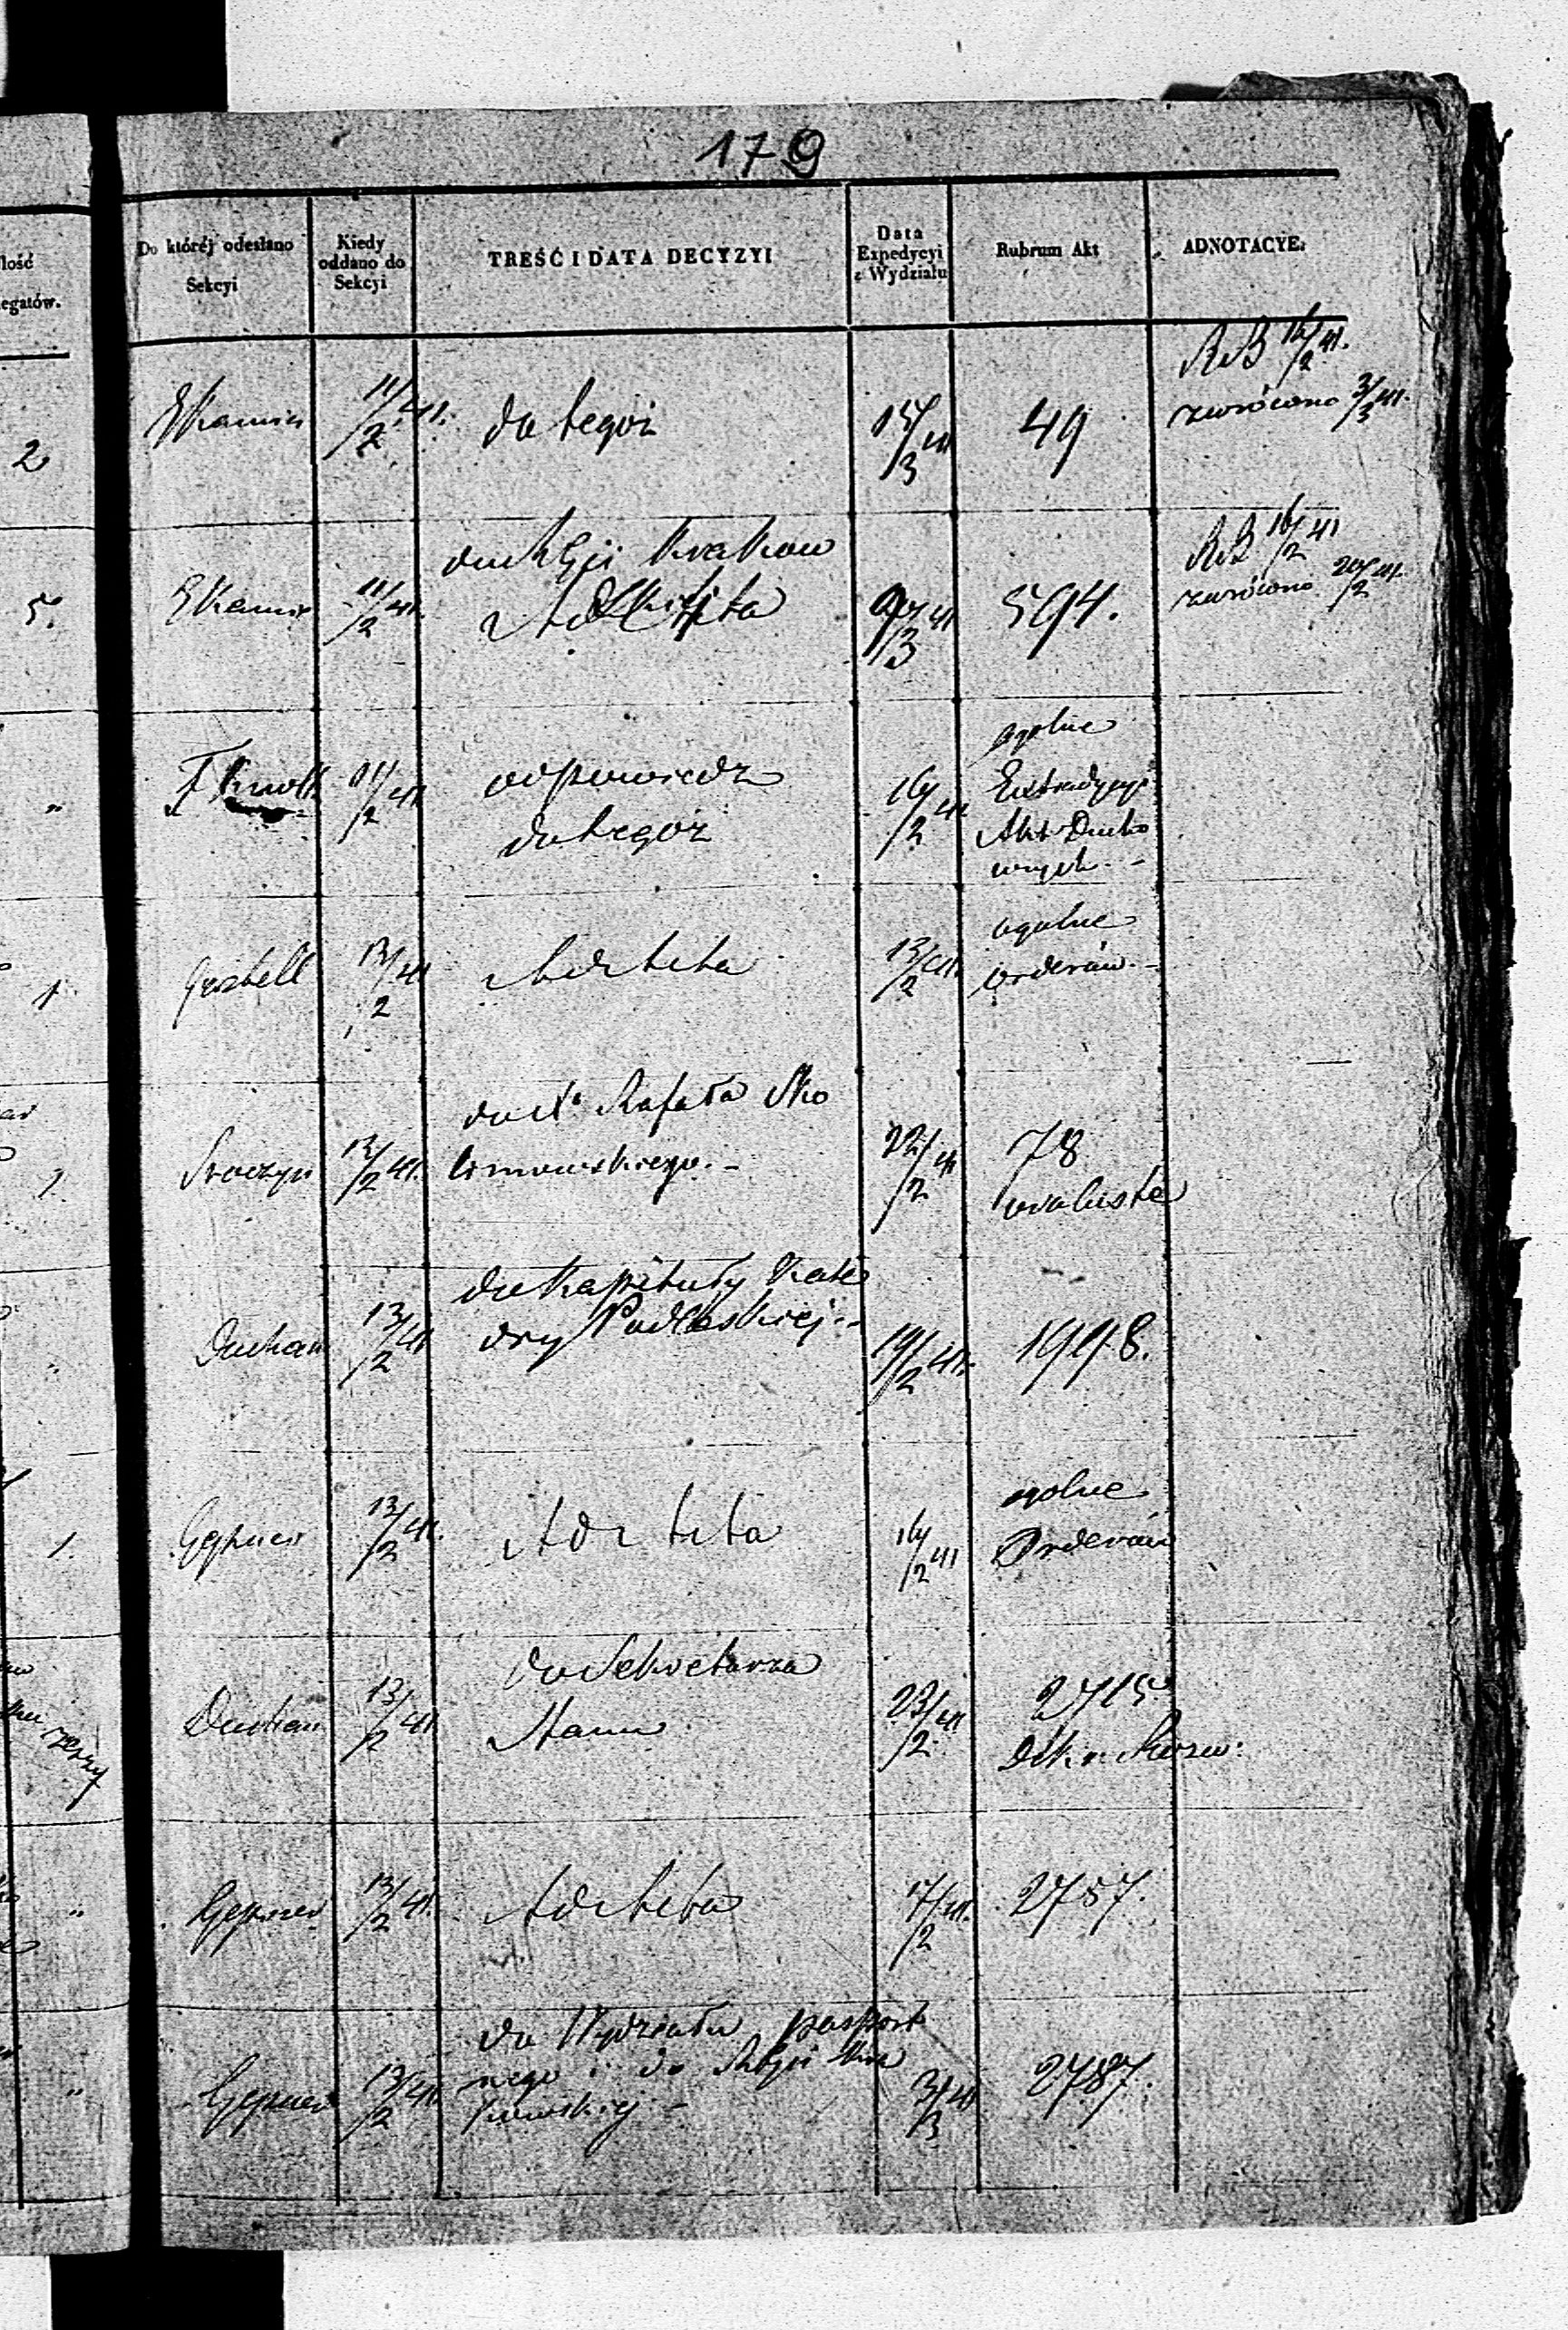 179
lość
egatów.
Do któréj odesłano
Sekcyi
Kiedy
oddano do
Sekcyi
TREŚĆ I DATA DECYZYI
Data
Expedycyi
z Wydziału
Rubrum Akt
ADNOTACYE.
2
11/2 41.
do tegoż
15/3 41
49
16/2 41.
zwrócono 3/3 41.
5.
11/2 41.
do RGu Krakow
Ad Acta
3 41
594.
16/2 41
zwrócono 20/2 41.
"
11/2 41
odpowiedz
do tegoż
16/2 41
ogolne
Extradycyi
Akt Ducho
wnych. -
1
13/2 41
Ad Acta
13/2 41.
ogolne
orderów. -
1.
Stoczyn
12/2 41.
do Rafała Sko
limowskiego. -
22/2 41
78
"
Duchan
13/2 41
do Kapituły Kate
dry Podlaskiej. -
19/2 41.
1998.
1.
Gepner
13/2 41.
Ad Acta
16/2 41
ogolne
Orderów
Duchan
13/2 41
do Sekretarza
Stanu
23/2 41
2715
"
Gepner
13/2 41.
Ad Acta
17/2 41.
2757.
"
Gepner
13/2 41.
do Wydziału paszport
nego i do Kra
kowskiej -
3/3 41
2787.